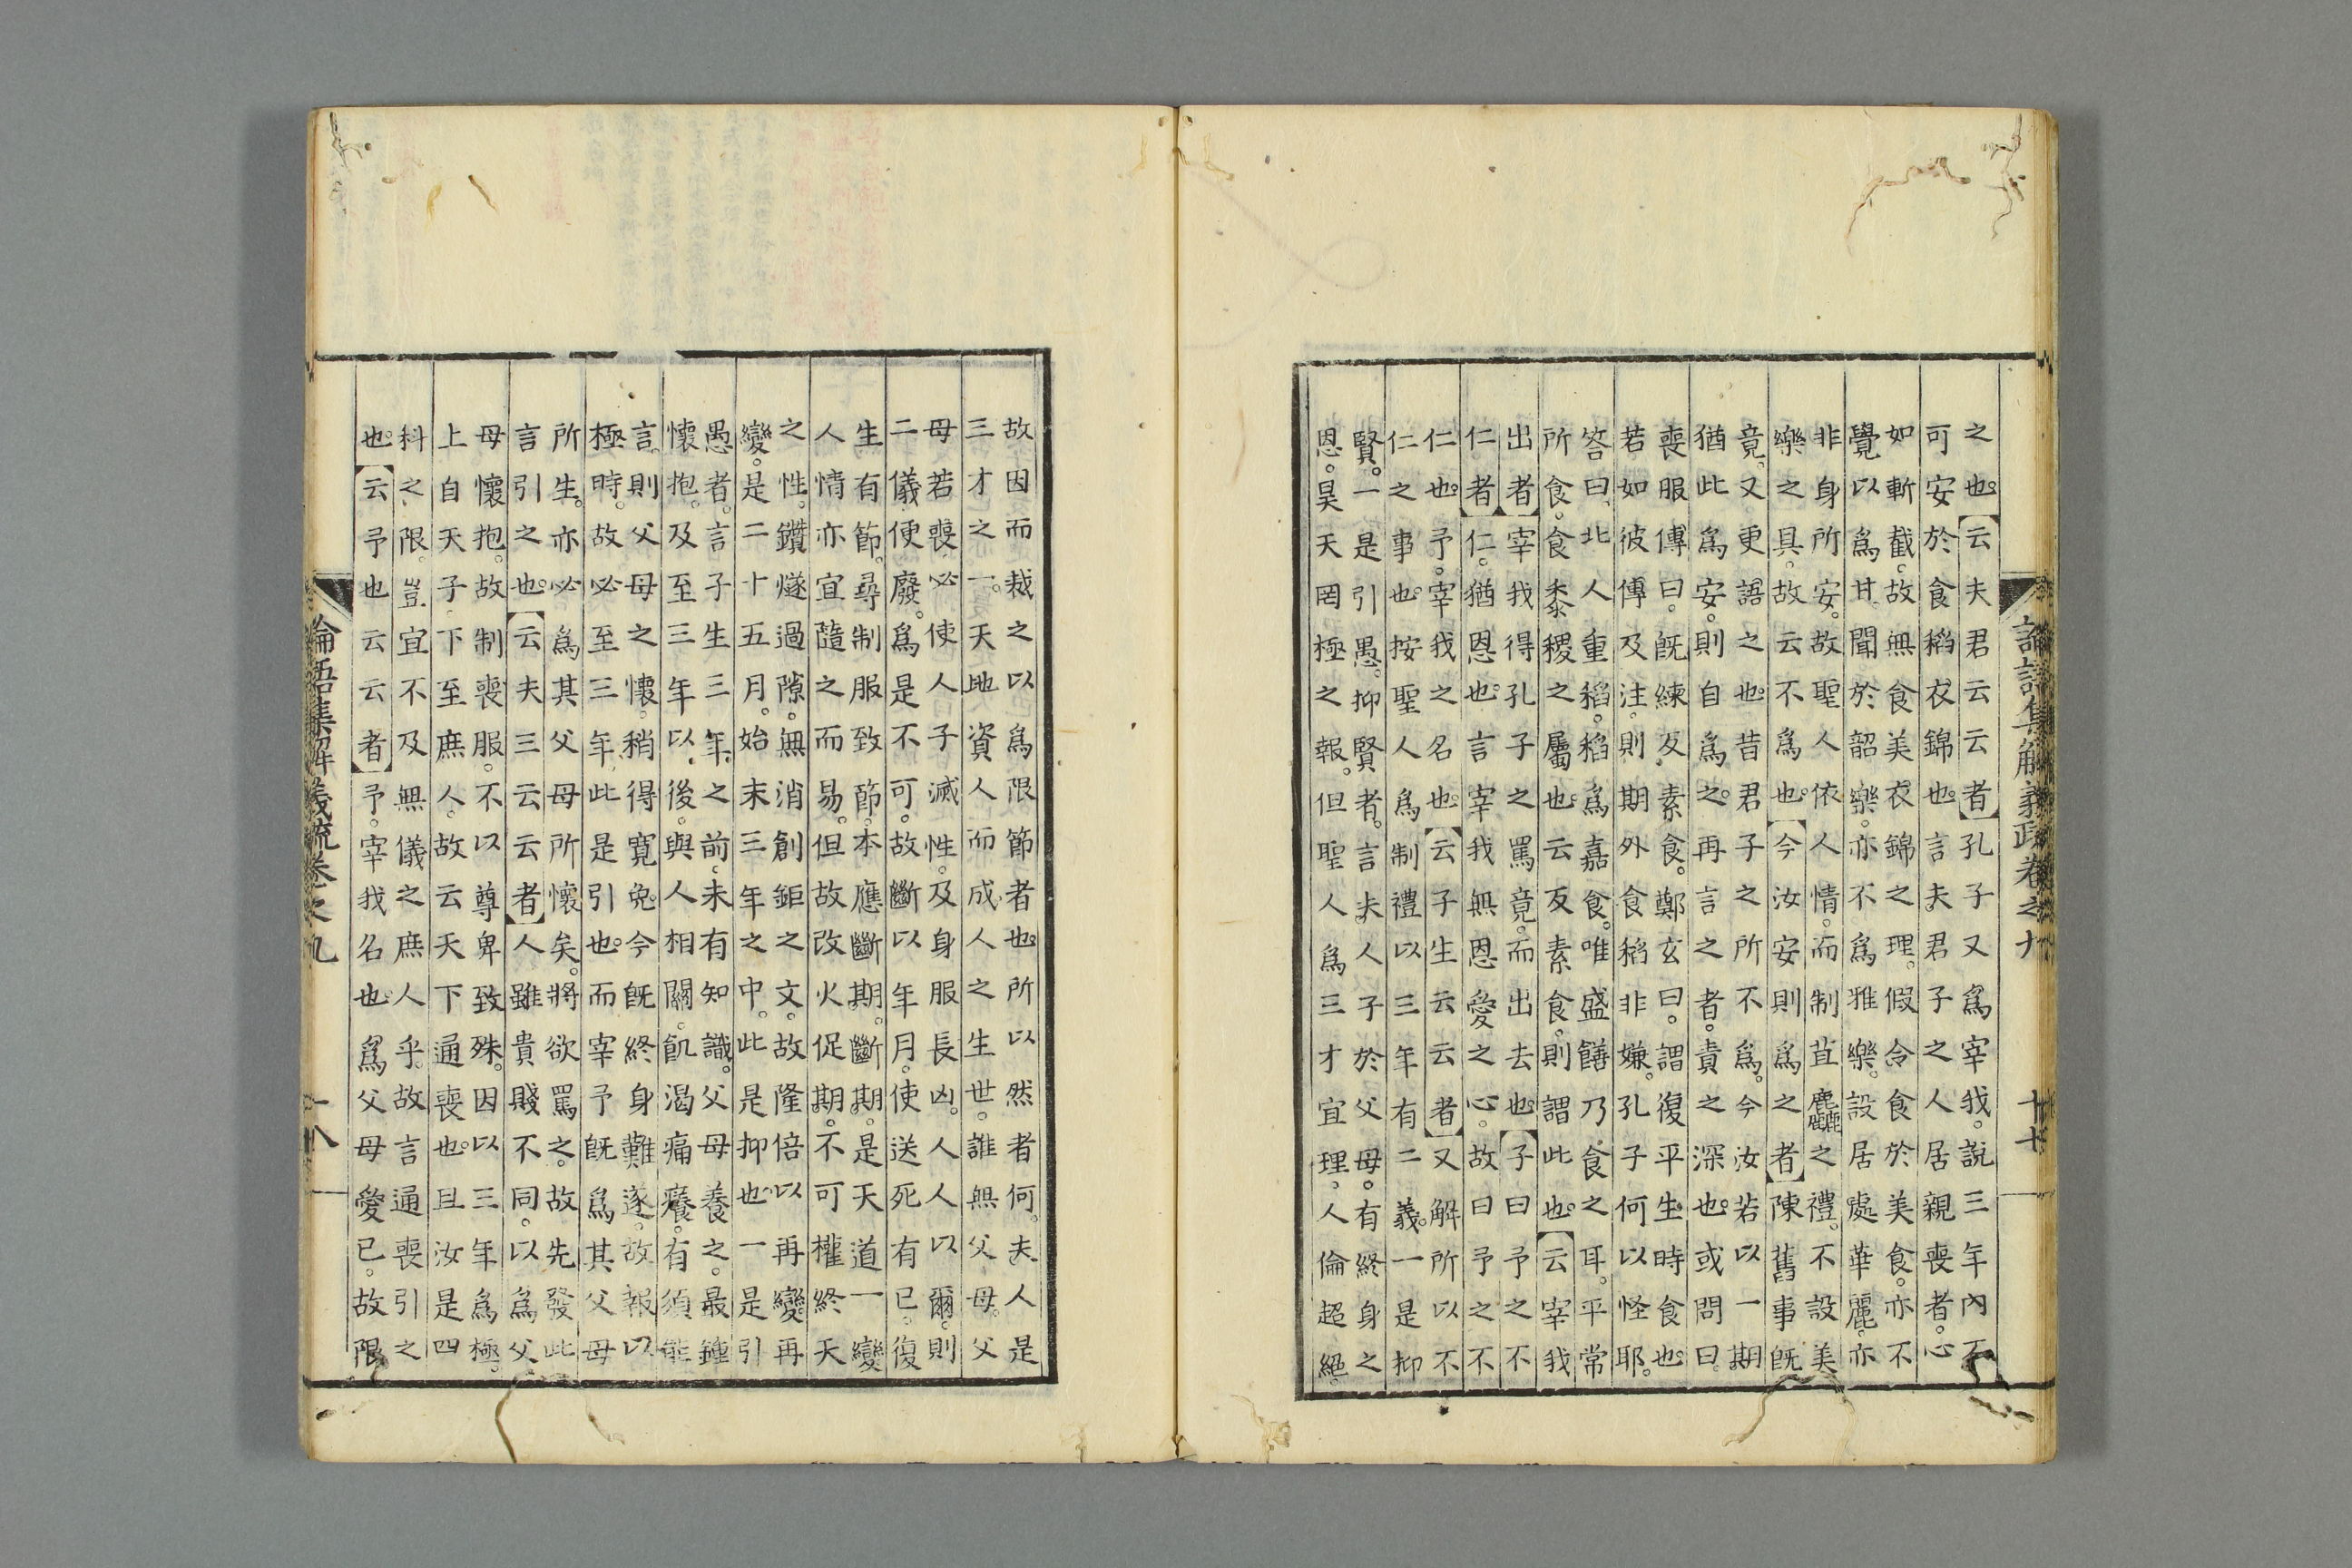 論語集解義疏卷之九 十七
之也。【云夫君云云者】孔子又爲宰我。說三年內不
可安於食稻衣錦也。言夫君子之人居親喪者。心
如斬截。故無食美衣錦之理。假令食於美食。亦不
覺以爲甘。聞於韶樂。亦不爲雅樂。設居處華麗。亦
非身所安。故聖人依人情。而制苴麤之禮。不設美
樂之具。故云不爲也。【今汝安則爲之者】陳舊事既
竟。又更語之也。昔君子之所不爲。今汝若以一期
猶此爲安。則自爲之。再言之者。責之深也。或問曰。
喪服傳曰。既練反素食。鄭玄曰。謂復平生時食也。
若如彼傳及注。則期外食稻非嫌。孔子何以怪耶。
答曰。北人重稻。稻爲嘉食。唯盛饍乃食之耳。平常
所食。食黍稷之屬也。云反素食。則謂此也。【云宰我
出者】宰我得孔子之罵竟。而出去也。【子曰予之不
仁者】仁。猶恩也。言宰我無恩愛之心。故曰予之不
仁也。予。宰我之名也。【云子生云云者】又解所以不
仁之事也。按聖人爲制禮以三年有二義。一是抑
賢。一是引愚。抑賢者。言夫人子於父母。有終身之
恩。昊天罔極之報。但聖人爲三才宜理。人倫超絕。
故因而裁之以爲限節者也。所以然者何。夫人是
三才之一。天地資人而成。人之生世。誰無父母。父
母若喪。必使人子滅性。及身服長凶。人人以爾。則
二儀便廢。爲是不可。故斷以年月。使送死有已。復
生有節。尋制服致節。本應斷期。斷期。是天道一變
人情亦宜隨之而易。但故改火促期。不可權終天
之性。鑽燧過隙。無消創鉅之文。故隆倍以再變。再
變。是二十五月。始末三年之中。此是抑也。一是引
愚者。言子生三年之前。未有知識。父母養之。最鍾
懷抱。及至三年以後。與人相關。飢渴痛癢。有須能
言。則父母之懷。稍得寬免。今既終身難遂。故報以
極時。故必至三年。此是引也。而宰予既爲其父母
所生。亦必爲其父母所懷矣。將欲罵之。故先發此
言引之也。【云夫三云云者】人雖貴賤不同。以爲父
母懷抱。故制喪服。不以尊卑致殊。因以三年爲極。
上自天子。下至庶人。故云天下通喪也。且汝是四
科之限。豈宜不及無儀之庶人乎。故言通喪引之
也。【云予也云云者】予。宰我名也。爲父母愛已。故限
論語集解義疏卷之九 十八